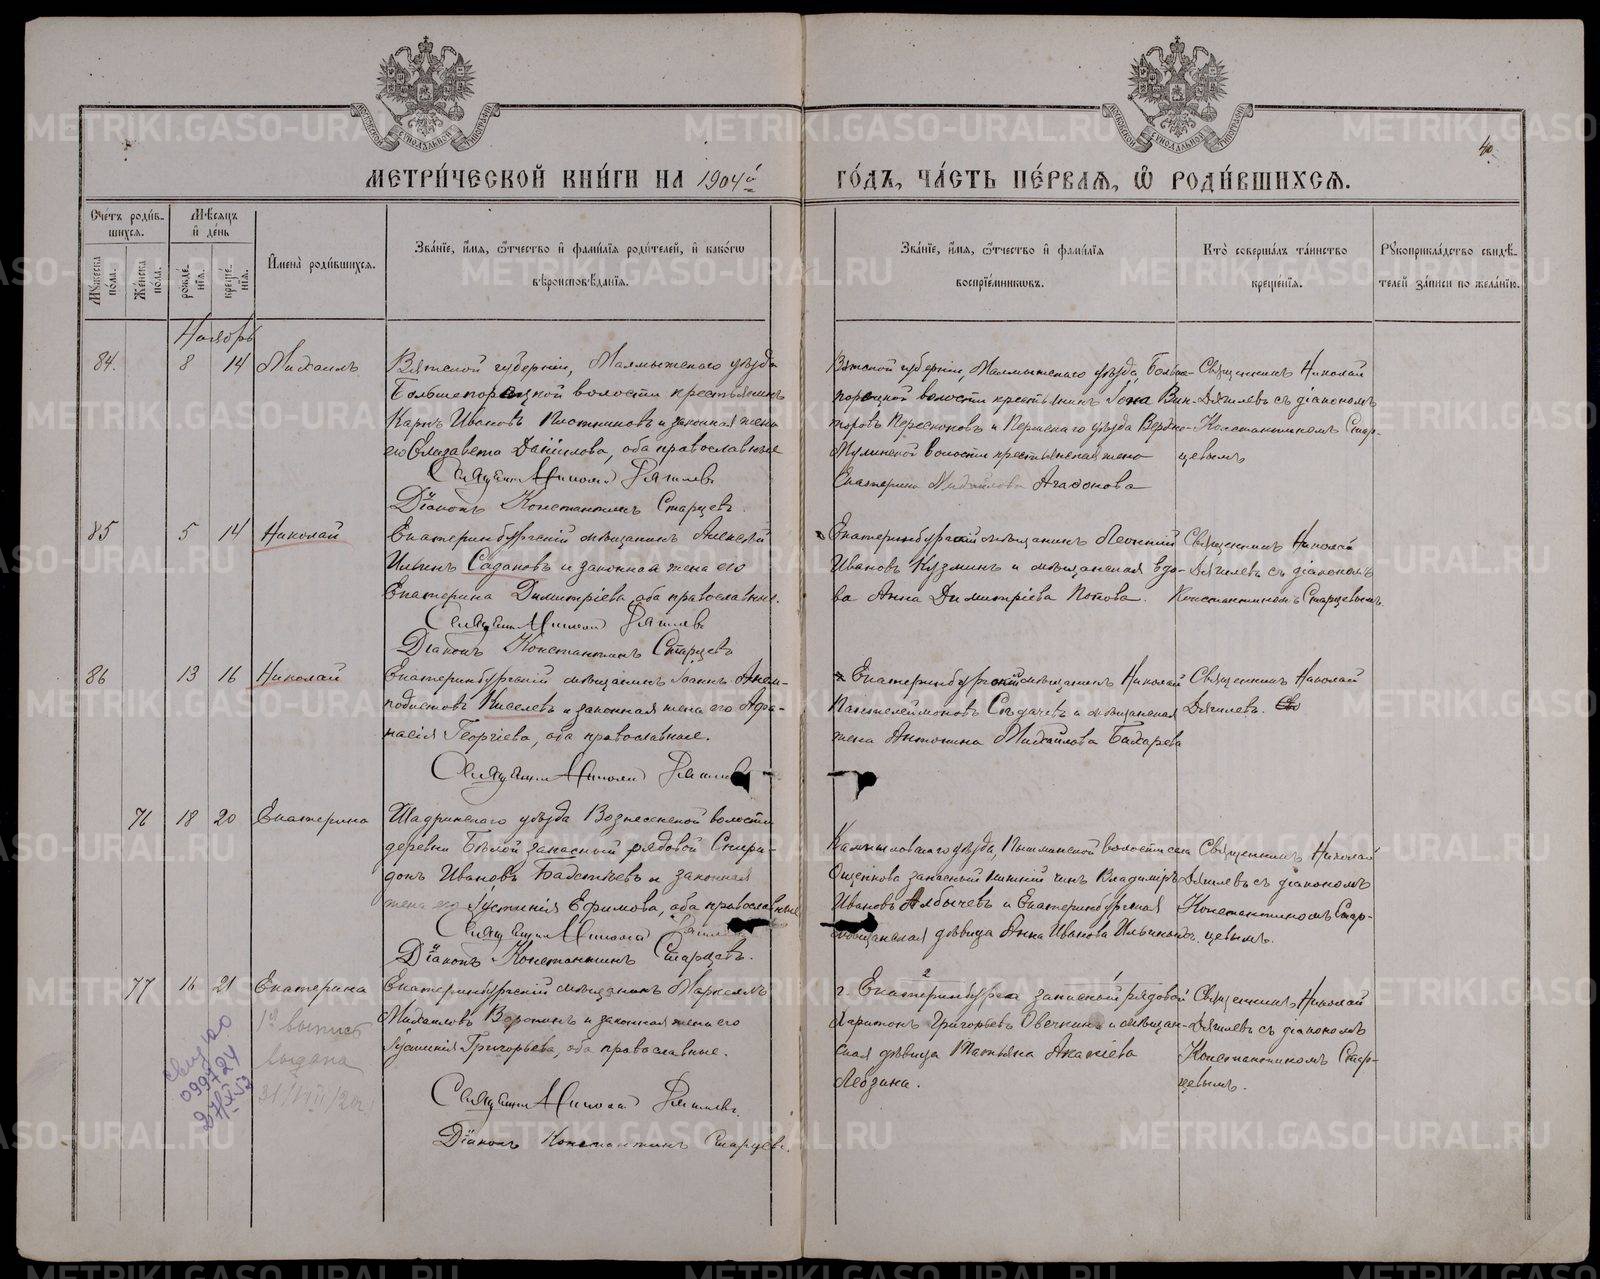 МЕТРИ́ЧЕСКОЙ КНИ́ГИ НА 1904й
ГО́ДЪ, ЧА́СТЬ ПЕ́РВАѦ, Ѿ РОДИ́ВШИХСѦ.
Сче́тъ роди́вшихсѧ.
Мꙋ́жеска по́ла.
Же́нска по́ла.
Мѣ́сѧцъ и де́нь
рожде́нїѧ.
креще́нїѧ.
Имена̀ роди́вшихсѧ.
Зва́нїе, и́мѧ, ѻ́тчество и фами́лїѧ роди́телей, и како́гѡ
вѣроисповѣ́данїѧ.
Зва́нїе, и́мѧ, ѻ́тчество и фами́лїѧ
воспрїе́мникѡвъ.
Кто̀ соверша́лъ та́инство
креще́нїѧ.
Рꙋкоприкла́дство свидѣ́-
телей за́писи по жела́нїю.
Ноябрь
84. 8 14 Михаилъ
Вятской губерніи, Малмыжскаго уѣзда
Большепорецкой волости крестьянинъ
Карпъ Ивановъ Плотниковъ и законная жена
его Елизавета Даніилова, оба православные
Священникъ Николай Дягилевъ
Діаконъ Константинъ Старцевъ.
Вятской губерніи, Малмыжскаго уѣзда, Больше-
порецкой волости крестьянинъ Іона Вик-
торовъ и Пермскаго уѣзда Верхне-
Муллинской волости крестьянская жена
Екатерина Михайлова Агафонова
Священникъ Николай
Дягилевъ съ діакономъ
Константиномъ Стар-
цевымъ
85 5 14 Николай
Екатеринбургскій мѣщанинъ Алексѣй
Ильинъ Садаковъ и законная жена его
Екатерина Димитріева, оба православные.
Священникъ Николай Дягилевъ
Діаконъ Константинъ Старцевъ
Екатеринбургскій мѣщанинъ Леонтій
Ивановъ Кузминъ и мѣщанская вдо-
ва Анна Димитріева Попова.
Священникъ Николай
Дягилевъ съ діакономъ
Константиномъ Старцевымъ.
86 13 16 Николай
Екатеринбургскій мѣщанинъ Іоаннъ Анем-
подистовъ Киселевъ и законная жена его Афа-
насія Георгіева, оба православные.
Священникъ Николай Дягилевъ
Екатеринбургскій мѣщанинъ Николай
Пантелеймоновъ и мѣщанская
жена Антонина Михайлова Бахарева
Священникъ Николай
Дягилевъ.
76 18 20 Екатерина
Шадринскаго уѣзда Вознесенской волости
деревни Бѣлой запасный рядовой Спири-
донъ Ивановъ и законная
жена его Іустинія Ефимова, оба православные
Священникъ Николай Дягилевъ
Діаконъ Константинъ Старцевъ.
Камышловскаго уѣзда, Пышминской волости села
Ощепкова запасный нижній чинъ Владиміръ
Ивановъ Албычевъ и Екатеринбургская
мѣщанская дѣвица Анна Иванова Ильиныхъ.
Священникъ Николай
Дягилевъ съ діакономъ
Константиномъ Стар-
цевымъ.
77 16 21 Екатерина
Екатеринбургскій мѣщанинъ Маркеллъ
Михаиловъ Воронинъ и законная жена его
Іустинія Григорьева, оба православные.
Священникъ Николай Дягилевъ.
Діаконъ Константинъ Старцевъ.
г. Екатеринбурга запасный рядовой
Харитонъ Григорьевъ Овечкинъ и мѣщан-
ская дѣвица Татьяна Акакіева
Лебзина.
Священникъ Николай
Дягилевъ съ діакономъ
Константиномъ Стар-
цевымъ.
выдана
099724
METRIKI.GASO-URAL.RU